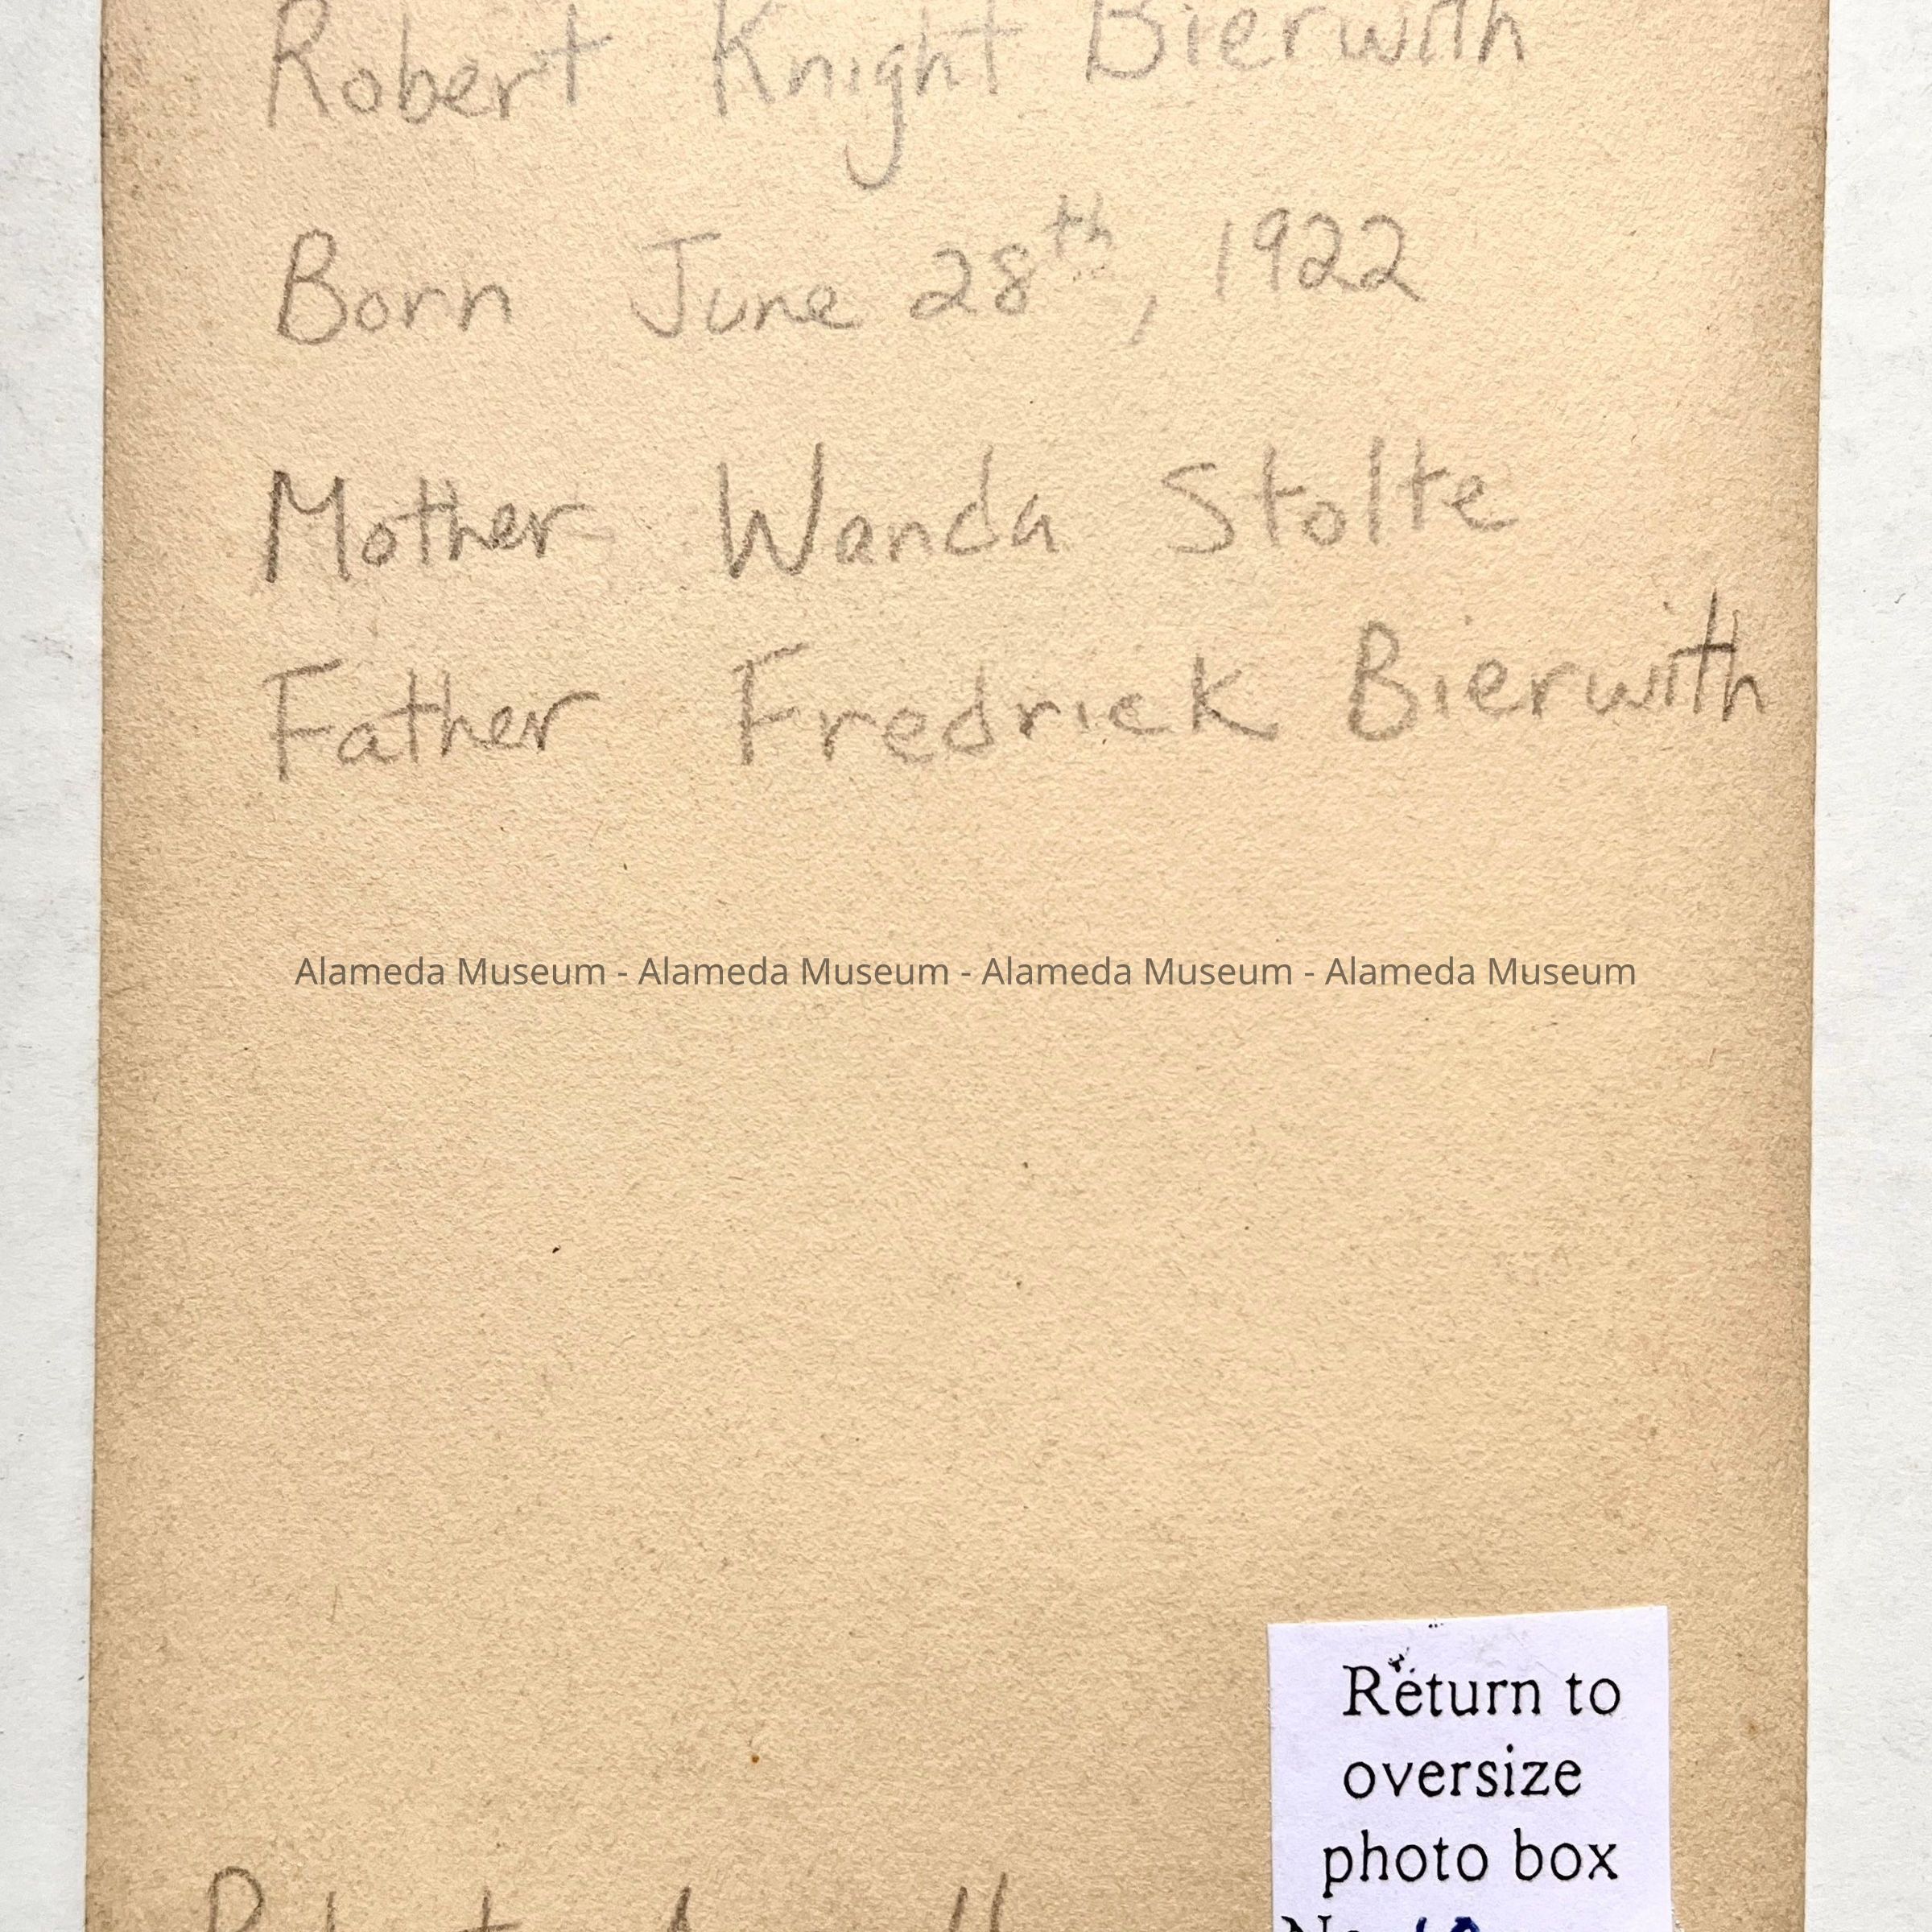 Robert Knight Bierwith
Born June 28th, 1922
Mother Wanda Stolte
Father Fredrick Bierwith
Alameda Museum - Alameda Museum - Alameda Museum - Alameda Museum
Return to
oversize
photo box